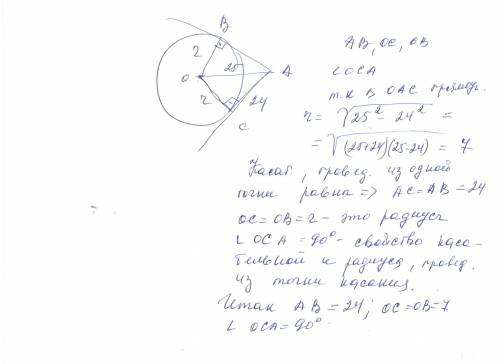 B
r
O
25
A
r
24
C
AB, OC, OB
∠OCA
т.к в OAC прямоуг.
r = √25² - 24² =
= √(25+24)(25-24) = 7
Касат., провед. из одной
точки равны => AC = AB = 24
OC = OB = r - это радиусы
∠ OCA = 90° - свойство каса-
тельной и радиуса, провед.
из точки касания.
Итак AB = 24; OC = OB = 7
∠ OCA = 90°